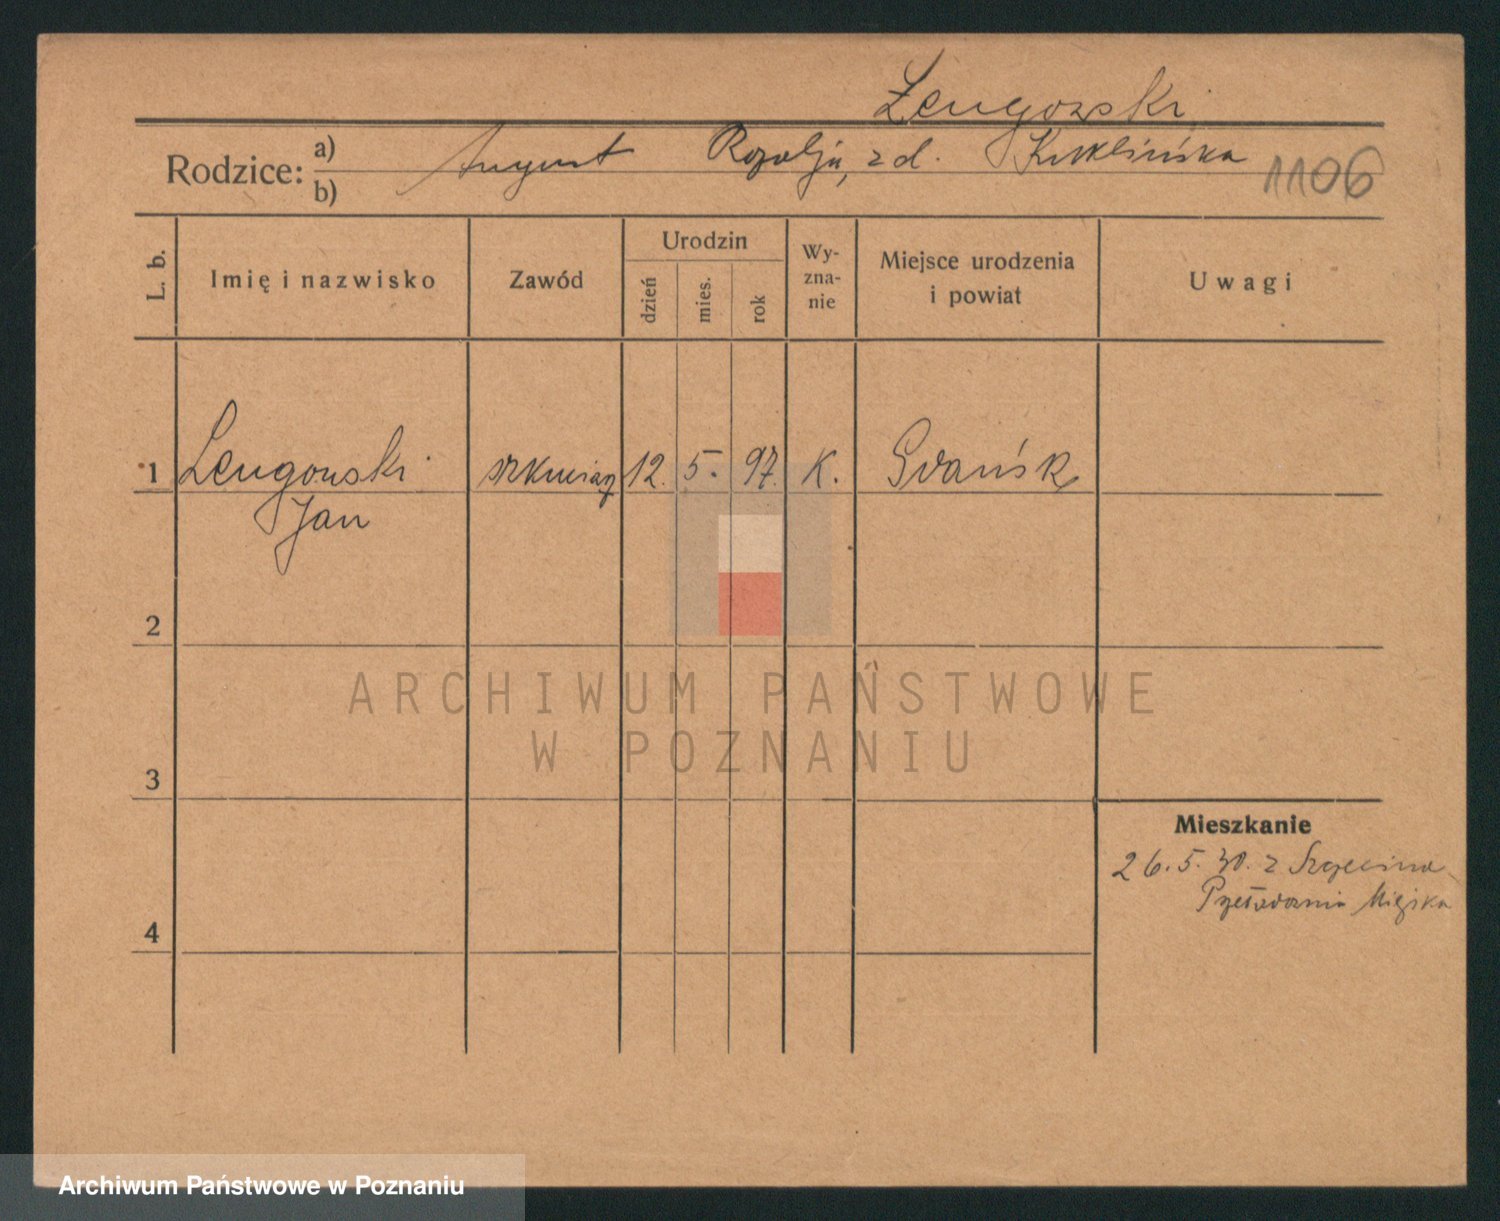 Lengowski
Rodzice: a) August Rozalja, z d. Kuklińska
b)
1106
L. b.
Imię i nazwisko
Zawód
Urodzin
dzień
mies.
rok
Wy-
zna-
nie
Miejsce urodzenia
i powiat
Uwagi
1 Lengowski 12. 5. 97. K. Gdańsk
Jan
2
ARCHIWUM PAŃSTWOWE
W POZNANIU
3
Mieszkanie
26.5.30. z Szczecina
4
Archiwum Państwowe w Poznaniu